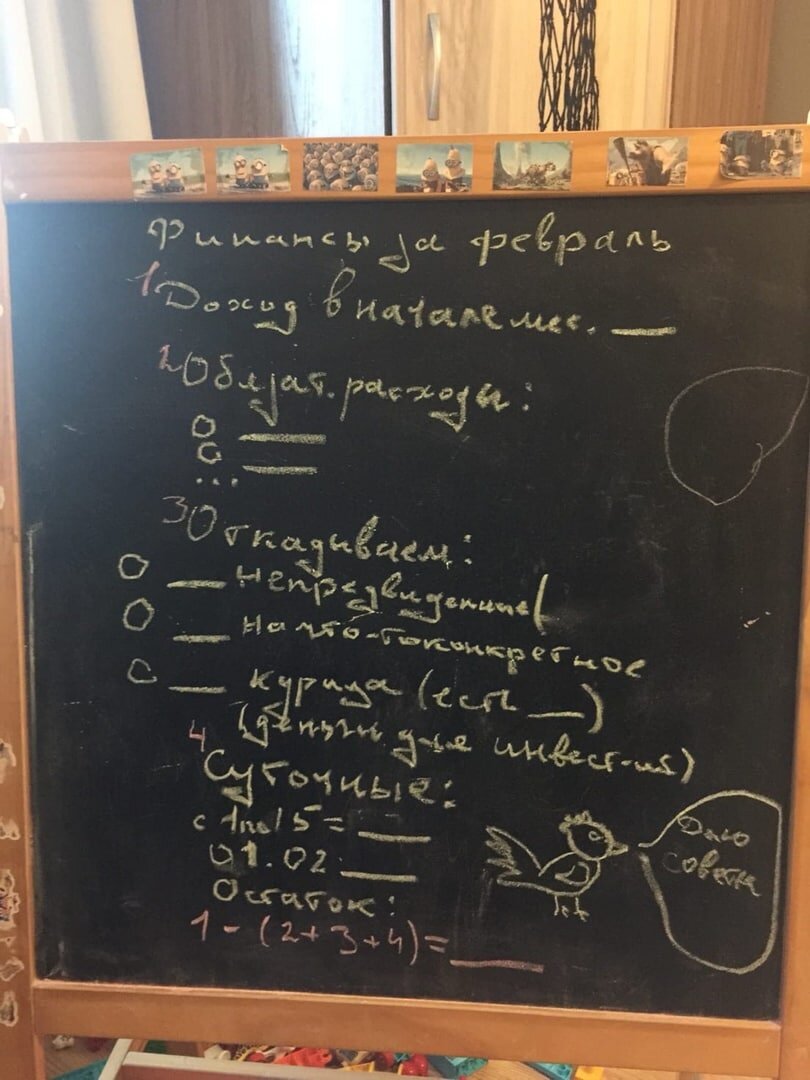 Финансы за февраль
1 Доход в начале мес. __
2 Обязат. расходы:
__
__
...
3 Откладываем:
__ Непредвиденные(
__ На что-то конкретное
__ курица (есть __)
(деньги для инвест-ий)
4 Суточные:
с 1 по 15 = __
01.02: __
Остаток:
1 - (2+3+4) = __
Даю
советы